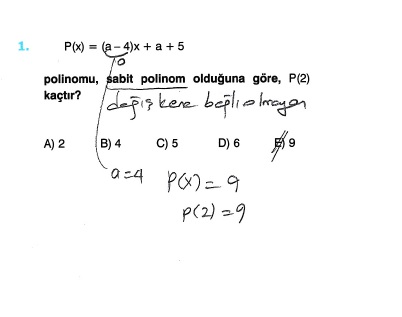 1. P(x) = (a – 4)x + a + 5
0
polinomu, sabit polinom olduğuna göre, P(2)
kaçtır?
değişkene bağlı olmayan
A) 2 B) 4 C) 5 D) 6 E) 9
a=4 P(x) = 9
P(2) = 9